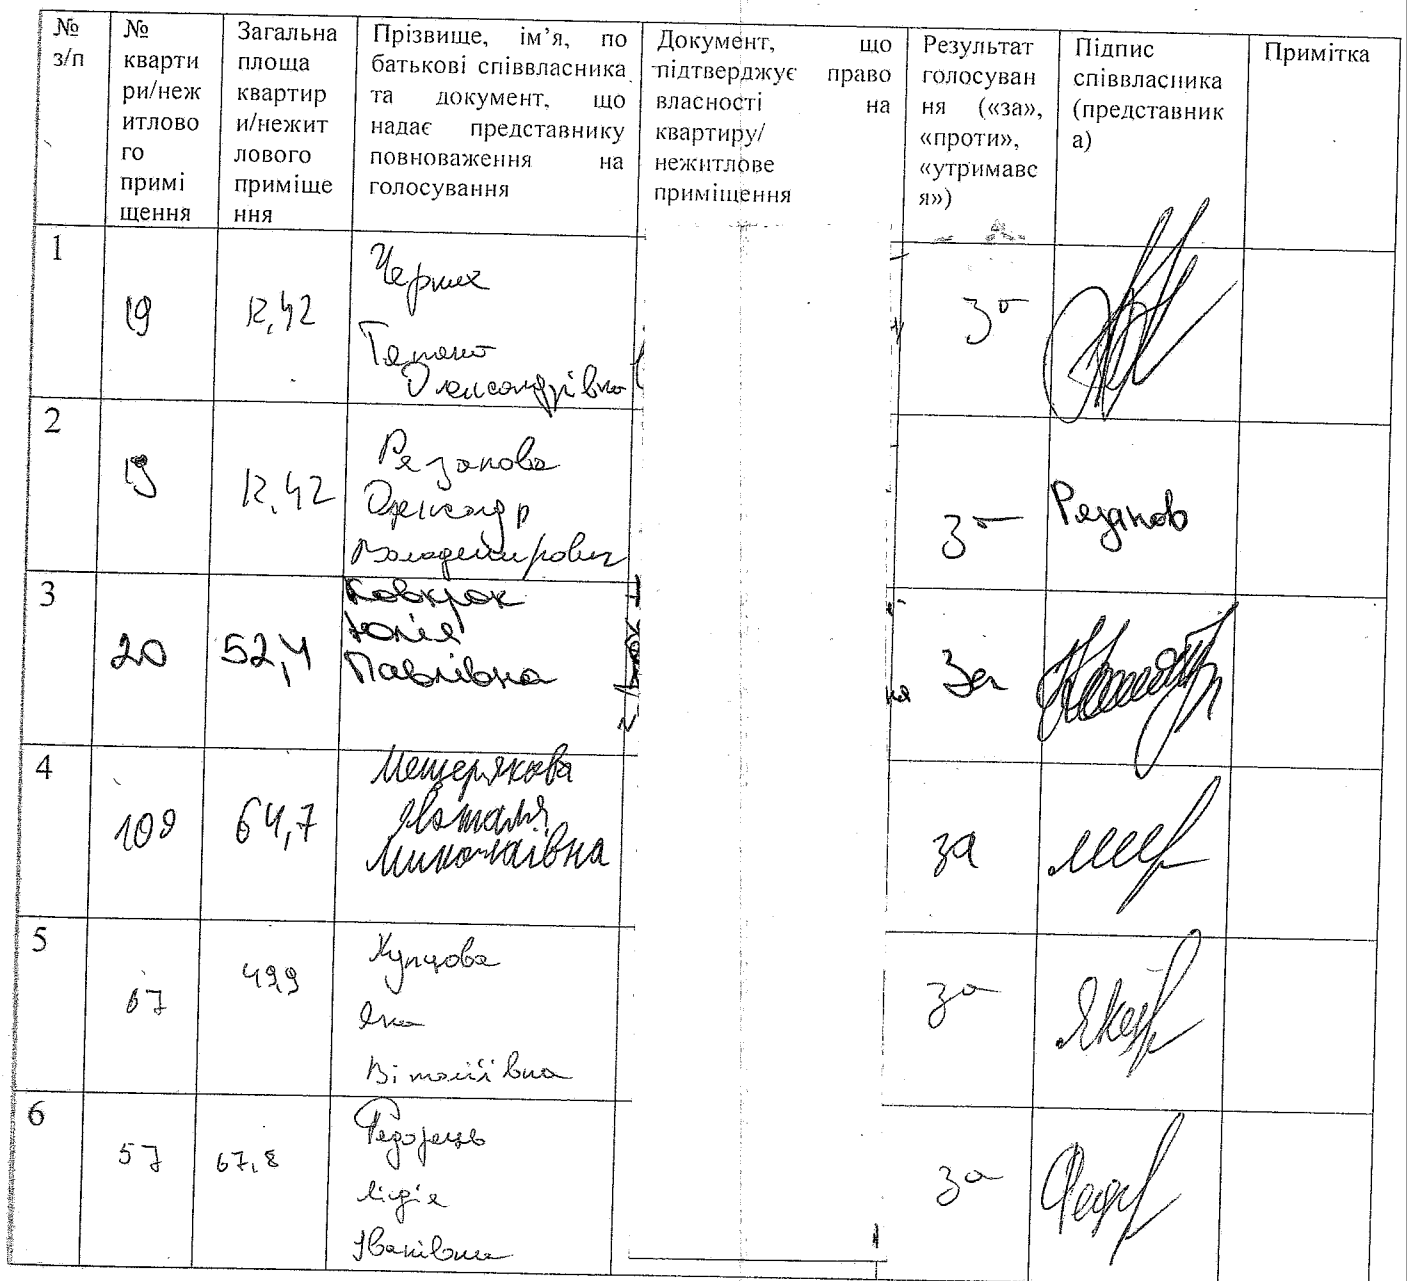 № з/п
№ кварти ри/неж итлово го примі щення
Загальна площа квартир и/нежит лового приміще ння
Прізвище, ім’я, по батькові співвласника та документ, що надає представнику повноваження на голосування
Документ, що підтверджує право власності на квартиру/ нежитлове приміщення
Результат голосуван ня («за», «проти», «утримавс я»)
Підпис співвласника (представник а)
Примітка
1
19
12,42
Черних
Тетяна
Олександрівна
За
2
19
12,42
Рязанова
Олександр
Володимирович
За
Рязанов
3
20
52,4
Ковкрак
Юлія
Павлівна
За
4
109
64,7
Мещерякова
Наталя
Миколаївна
за
5
67
49,9
Купцова
Яна
Віталіївна
за
6
57
67,8
Федорець
Лідія
Іванівна
за